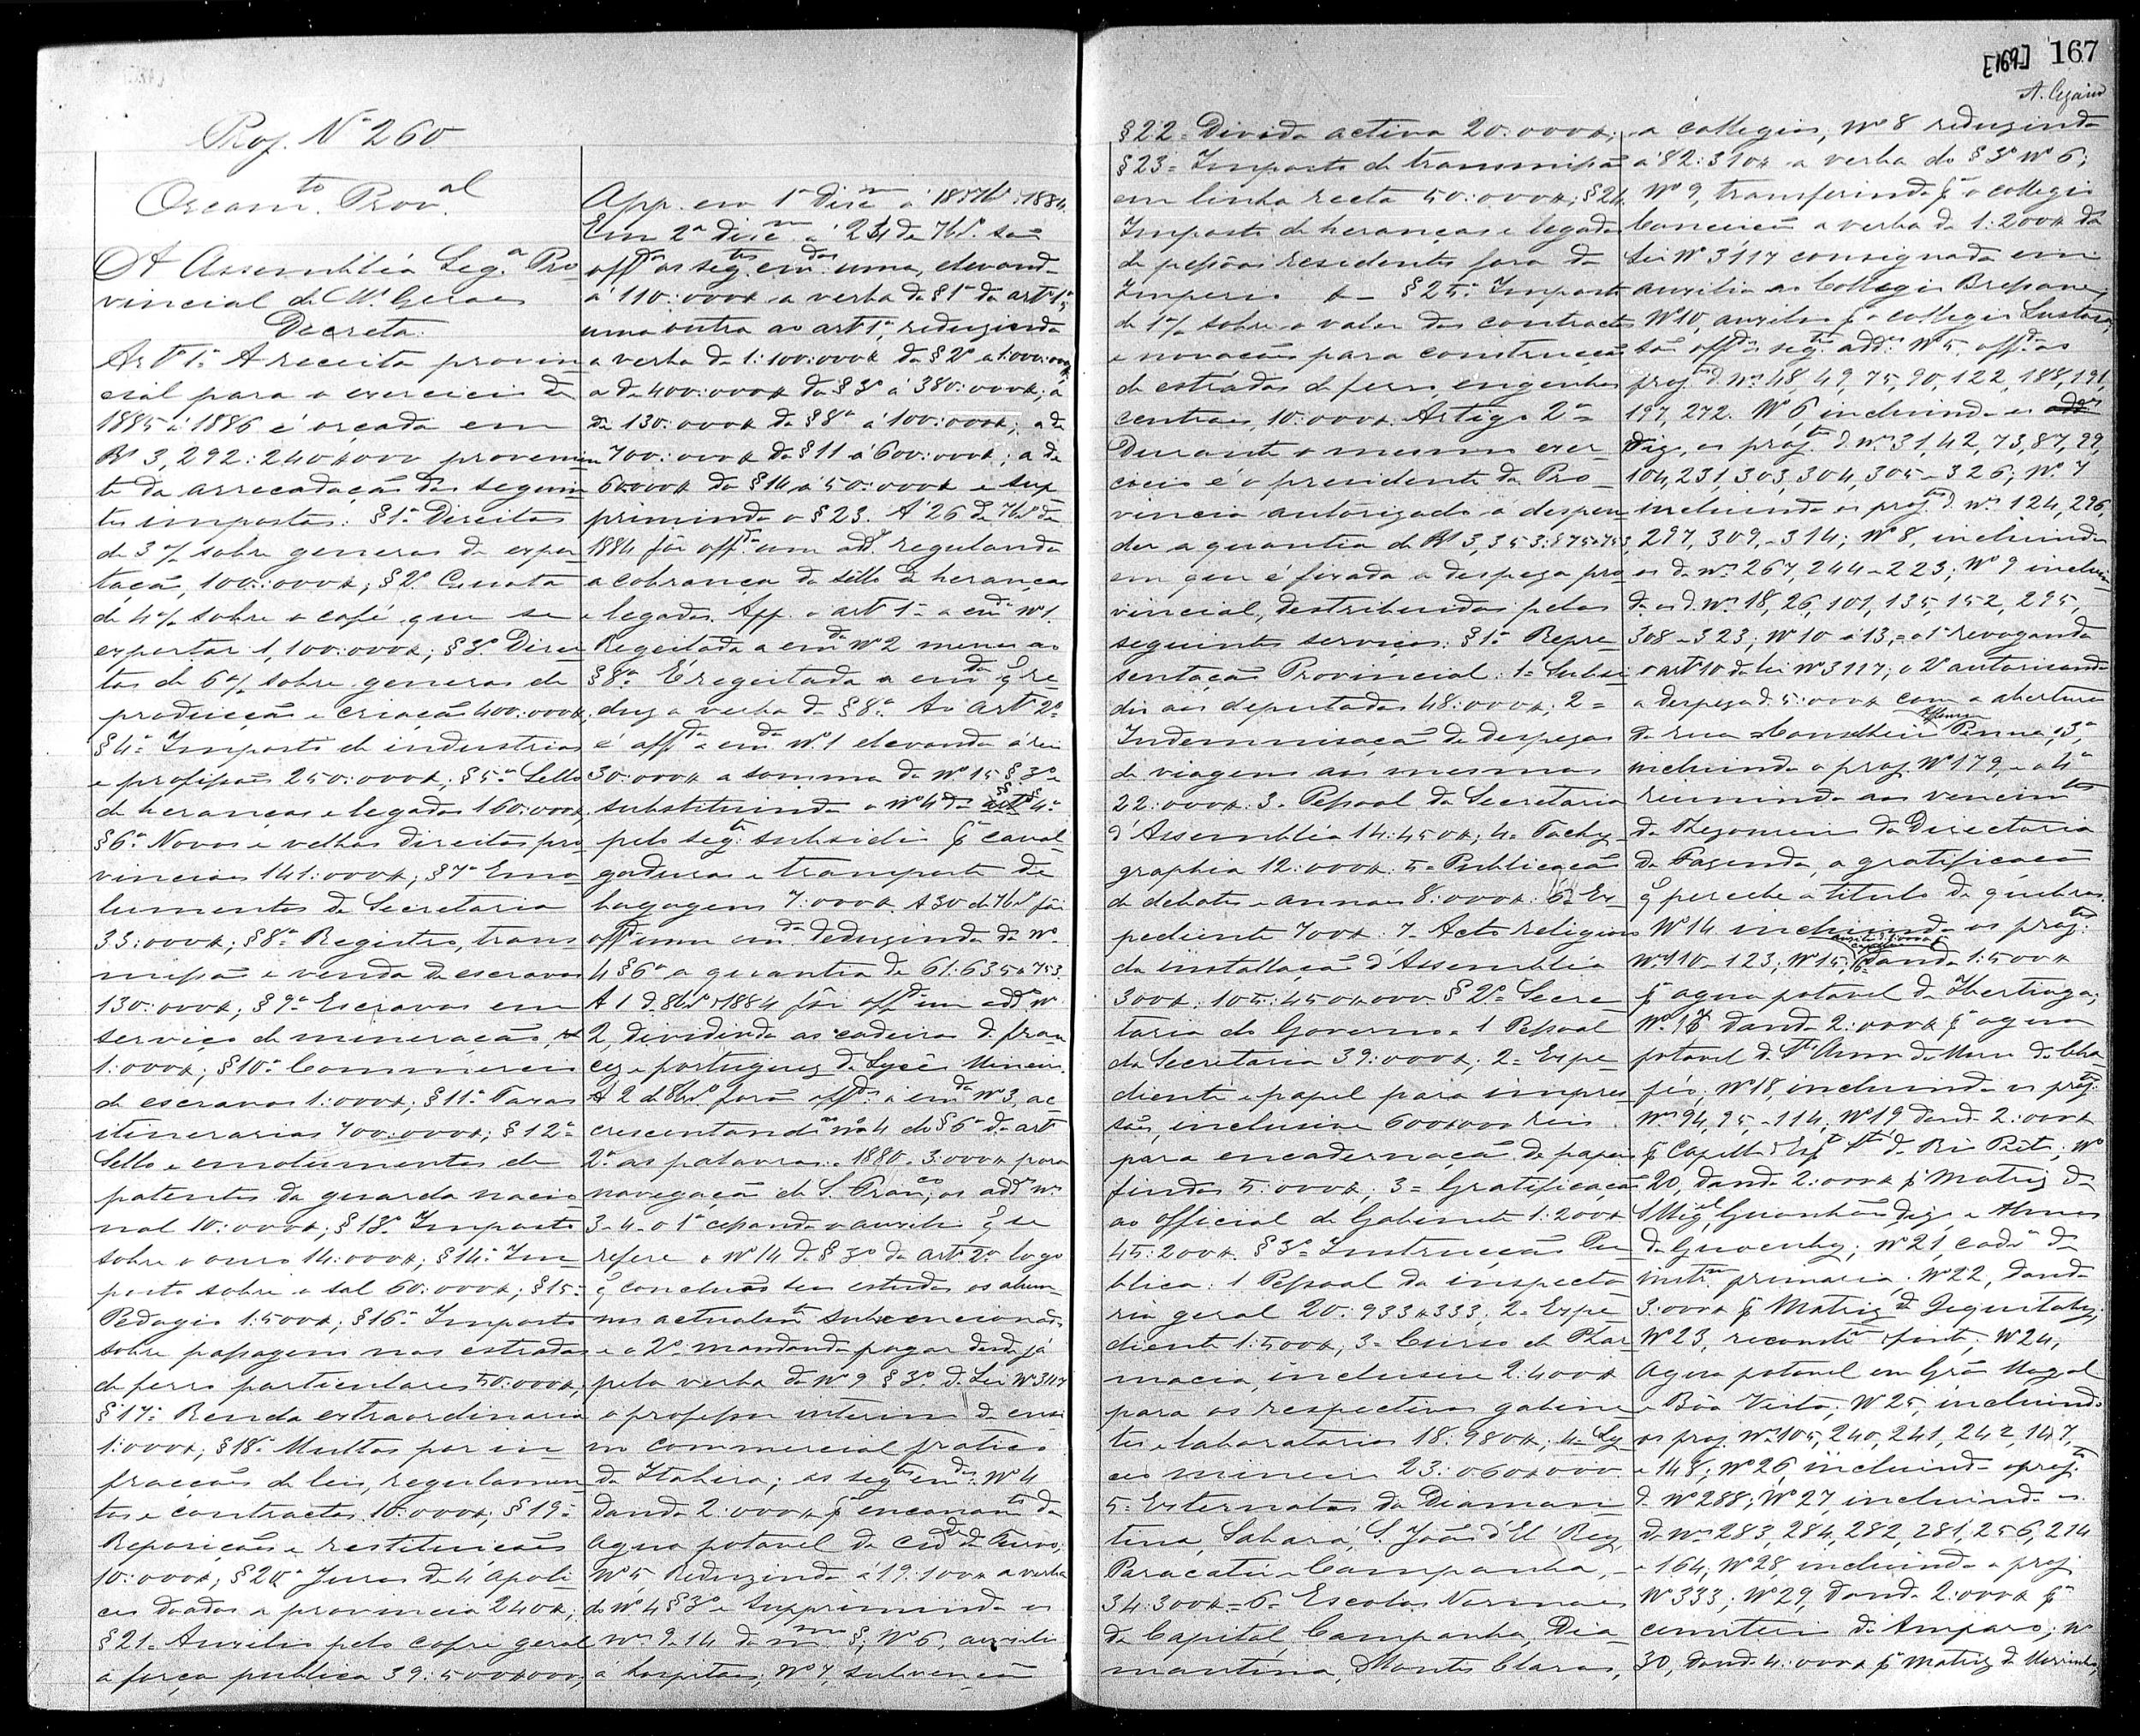 [169] 167
Proj. Nº 260
Orcamto. Proval.
A Assembléa Lega. Pro
vincial de M. Geraes
Decreta:
Artº 1º A receita provin
cial para o exercicio de
1885 á 1886 é orçada em
Rs 3,292:240$000 provenien
te da arrecadação dos seguin
tes impostos: §1º Direitos
de 3% sobre generos de expor
tação, 100:000$; §2º Quota
de 4% sobre o café que se
exportar 1,100:000$; §3º Direi
tos de 6% sobre generos de
producção e criação 400:000$;
§4º Imposto de industrias
e profissões 250:000$; §5º Sello
de heranças e legados 160:000$
§6º Novos e velhos direitos pro
vinciaes 141:000$; §7º Emo
lumentos da Secretaria
33:000$; §8º Registro, trans
missão e venda de escravos
130:000$; §9º Escravos em
serviço de mineração,
1:000$; §10º Commercio
de escravos 1:000$; §11º Taxas
itinerarias 700:000$; §12º
Sello e emolumentos de
patentes da guarda nacio
nal 10:000$; §13º Imposto
sobre o ouro 14:000$; §14º Im
posto sobre o sal 60:000$; §15º
Pedagio 1:500$; §16º Imposto
sobre passagem nas estradas
de ferro particulares 50:000$;
§17º Renda extraordinaria
1:000$; §18º Multas por in
fracções de leis, regulamen
tos e contractos 10:000$; §19º
Reposições e restituições
10:000$; §20º Juros de 4 apoli
ces doadas a provincia 240$;
§21º Auxilio pelo cofre geral
a força publica 39:500$000;
App. em 1ª discm á 18 7bro 1884.
Em 2ª discm á 24 de 7bro são
offdas as segtes emdas: uma, elevando
á 110:000$ a verba do §1º do artº 1º,
uma outra ao artº 1º, reduzindo
a verba de 1:100:000$ do §2º a 1:000:000$
a de 400:000$ do §3º á 380:000$; a
de 130:000$ do §8º á 100:000$; a de
700:000$ do §11 á 600:000$; a de
60:000$ do §14 á 50:000$ e sup
primindo o §23. Á 26 de 7bro de
1884 foi offdo um addo regulando
a cobrança do sello de heranças
e legados. App. o artº 1º e a emda nº 1.
Regeitada a emda nº 2 menos ao
§8º. É regeitada a emda q re
duz a verba do §8º. Ao artº 2º
é offda a emda nº 1 elevando á reis
30:000$ a somma do nº 15 §3º e
substituindo o nº 4 do §4º
pelo segte: subsidio pa caval
gaduras e transporte de
bagagens 7:000$. A 30 de 7bro foi
offda uma emda deduzindo do nº
4 §6º a quantia de 61:635$753.
A 1 de 8bro 1884 foi offdo um addo nº
2, dividindo as cadeiras de fran
cez e portuguez do Lyceo Mineiro.
A 2 de 8bro forão offdas a emda nº 3, ac
crescentando ao nº 4 do §6º do art
2º as palavras: 1880. 3:000$ para
navegação do S. Franco; os addos nos
3 e 4 o 1º cessando o auxilio q se
refere o nº 14 do §3º do artº 2º logo
q concluão seus estudos os alum-
nos actualmte subvencionados
e o 2º mandando pagar desde já
pela verba do nº 9 §3º da Lei nº 3117
o professor interino de ensi
no commercial pratico
da Itabira; as segtes emdas: nº 4
dando 2:000$ pa encanamto de
agua potavel da cidde do Turvo;
nº 5 Reduzindo á 19:100$ a verba
do nº 4 §3º e supprimindo os
nos 9 e 14 do mmo §; nº 6, auxilio
a hospitaes; nº 7, subvenção
§22º Divida activa 20:000$;
§23º Imposto de transmissão
em linha recta 50:000$; §24
Imposto de heranças e legados
de pessôas residentes fora do
Imperio $ — §25º Imposto
de 1% sobre o valor dos contractos
e novações para construcção
de estradas de ferro, engenhos
centraes, 10:000$. Artigo 2º
Durante o mesmo exer-
cicio é o presidente da Pro-
vincia autorizado a despen-
der a quantia de Rs 3,353:875$753,
em que é fixada a despeza pro
vincial, destribuidas pelos
seguintes serviços: §1º Repre-
sentação Provincial: 1º Subsi
dio aos deputados 48:000$; 2º
Indemnisação de despezas
de viagens aos mesmos
22:000$. 3º Pessoal da Secretaria
d'Assembléa 14:450$; 4º Tachy
graphia 12:000$. 5º Publicação
de debates e annaes 8:000$. 6º Ex-
pediente 700$. 7º Acto religioso
da installação d'Assembléa
300$. 105:450$000. §2º Secre
taria do Governo. 1 Pessoal
da Secretaria 39:000$; 2º Expe-
diente e papel para impres-
são, inclusive 600$000 reis
para encadernação de papeis
findos 5:000$; 3º Gratificação
ao official de Gabinete 1:200$
45:200$. §3º Instrucção Pu
blica: 1 Pessoal da inspecto
ria geral 20:933$333, 2º Expe-
diente 1:500$, 3º Curso de Phar
macia, inclusive 2:400$
para os respectivos gabine
tes e laboratorios 18:980$; 4º Ly
ceo mineiro 23:060$000
5º Externatos da Diaman
tina, Sabará, S. João d'El Rey,
Paracatú e Campanha, —
34:300$. 6º Escolas Normaes
da Capital, Campanha, Dia-
mantina, Montes Claros,
a collegios, nº 8 reduzindo
á 82:310$ a verba do §3º nº 6;
nº 9, transferindo pa o collegio
Conceição a verba de 1:200$ da
Lei nº 3117 consignada em
auxilio ao Collegio Bressane;
nº 10, auxilio pa o collegio Lustosa;
são offdos os segtes addos: nº 5 offdo as
projos de nos 48, 49, 75, 90, 122, 188, 191,
197, 272. Nº 6, incluindo os addos
digo, os projtos de nos 31, 42, 73, 87, 99,
104, 231, 303, 304, 305 e 326; nº 7
incluindo os projtos de nos 124, 296,
297, 309, e 314; nº 8, incluindo
os de nos 267, 244 e 223; nº 9 incluin
do os de nos 18, 26, 101, 135, 152, 295,
308 e 323; nº 10 a 13, o 1º revogando
o artº 10 da lei nº 3117; o 2º autorisando
a despeza de 5:000$ com a abertura
da rua Conselheiro Affonso Penna; o 3º,
incluindo o proj. nº 179, e o 4º
reunindo aos vencimtos
do Thezoureiro da Directoria
de Fazenda, a gratificação
q percebe a titulo de quebras.
Nº 14 incluindo os projtos:
nos 110 e 123; nº 15, dando 1:500$
pa agua potavel da Ibertioga;
nº 17 dando 2:000$ pa agua
potavel de Sta Anna do Morro do Cha
péo; nº 18, incluindo os projtos
nos 94, 95, e 114, nº 19 dando 2:000$
pa Capella Espto Sto do Rio Preto; nº
20, dando 2:000$ pa Matriz de
S. Migel Guanhães, digo e Almas
de Guanhães; nº 21, cadas de
instrm primaria; nº 22, dando
3:000$ pa Matriz de Jequitahy;
nº 23, reconstm ponte, nº 24,
Agua potavel em Grão Mogol
e Bôa Vista; nº 25, incluindo
os proj. nos 105, 240, 241, 242, 147,
e 148; nº 26, incluindo o projto
de nº 288; nº 27, incluindo os
de nos 283, 284, 282, 281, 256, 214
e 164, nº 28, incluindo o proj
nº 333; nº 29, dando 2:000$ pa
cemiterio do Amparo; nº
30, dando 4:000$ pa matriz de